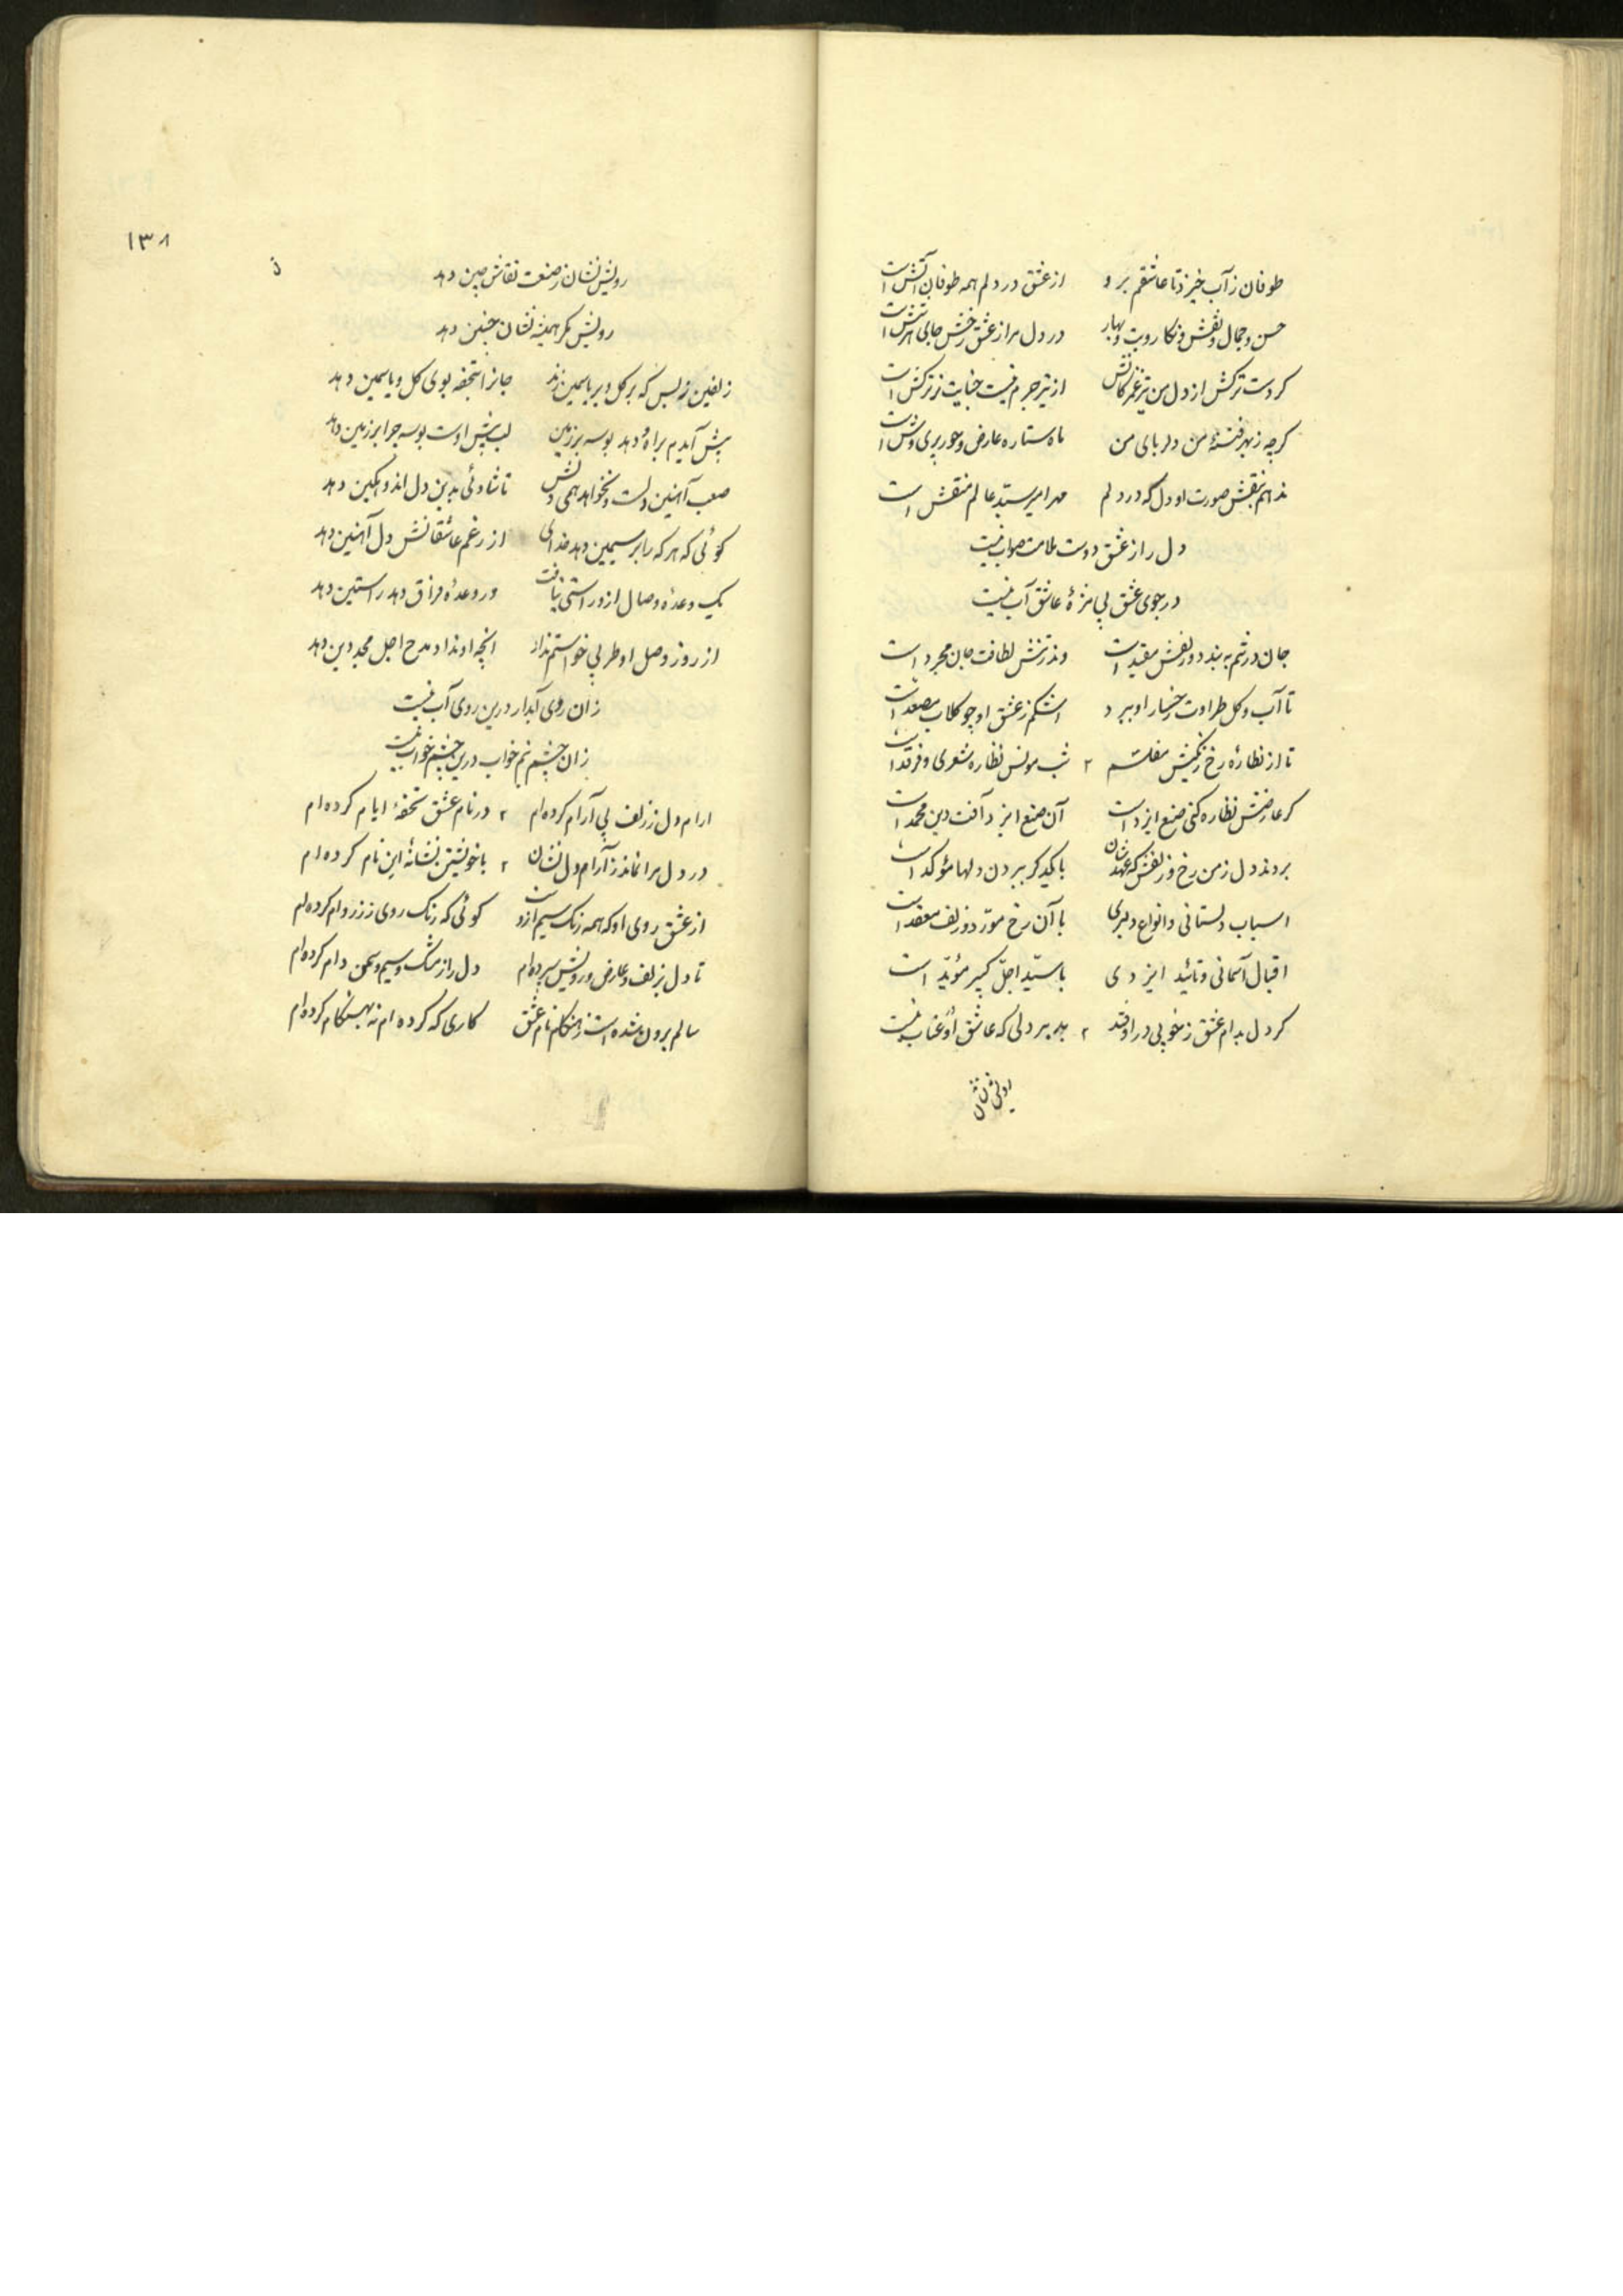 طوفان ز آب خیزد تا عاشقم برو از عشق در دلم همه طوفان آتش است
حسن و جمال و نقش و نگار و بت و بهار در دل مرا ز عشق رخش جای هر شش است
کردست ترکش از دل من تیر غمزگانش از تیر جرم نیست جنایت ز ترکش است
کرچه ز بهر فتنهٔ من دلربای من ماه ستاره عارض و حور پری وش است
ندهم بنقش صورت او دل که در دلم مهر امیر سید عالم منقش است
دل را ز عشق دوست ملامت صواب نیست
در جوی عشق بی مزهٔ عاشق آب نیست
جان در تنم به بند دو زلفش مقید است وندر تنش لطافت جان مجرد است
تا آب و کل طراوت رخسار او ببرد اشکم ز عشق او چو کلاب مصعد است
تا از نظارهٔ رخ رنکینش مفلسم شب مونس نظاره شعری و فرقد است
کر عارضش نظاره کنی صنع ایزد است آن صنع ایزد آفت دین محمد است
بردند دل ز من رخ و زلفش که عهدشان با یکدکر ببردن دلها مؤکد است
اسباب دلستانی و انواع دلبری با آن رخ مورد و زلف معقد است
اقبال آسمانی و تائید ایزدی با سید اجل کبیر مؤید است
کر دل بدام عشق ز خوبی در اوفتد بد بر دلی که عاشق او عتاب نیست
رویش نشان
۱۳۸
رویش نشان ز صنعت نقاش چین دهد
رویش مکر همیشه نشان چنین دهد
زلفین زلبس که بر کل و بر یاسمین زند جانرا تحفه بوی کل و یاسمین دهد
پیش آیدم براه و دهد بوسه بر زمین لب پیش اوست بوسه چرا بر زمین دهد
صعب آهنین دلست و نخواهد همی دلش تا شادئی بدین دل اندوهکین دهد
کوئی که هر که را بر سیمین دهد خدای از رغم عاشقانش دل آهنین دهد
یک وعدهٔ وصال ازو راستی نیافت ور وعدهٔ فراق دهد راستین دهد
از روز وصل او طربی خواستم نداد انچه او نداد مدح اجل مجد دین دهد
زان روی آبدار درین روی آب نیست
زان چشم نیم خواب درین چشم خواب نیست
ارام دل ز زلف بی آرام کرده ام در نام عشق تحفهٔ ایام کرده ام
در دل مرا نماند ز آرام دل نشان با خویشتن نشانهٔ این نام کرده ام
از عشق روی او که همه رنک سیم ازوست کوئی که رنک روی ز زر وام کرده ام
تا دل بزلف و عارض و رویش سپرده ام دل را ز مشک و سیم و سمن دام کرده ام
سالم برون شده است ز هنکام نام عشق کاری که کرده ام نه بهنکام کرده ام